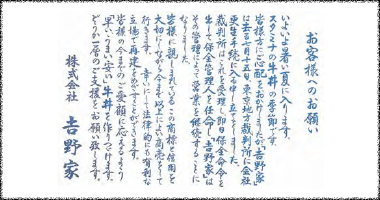 お客様へのお願い
いよいよ暑い夏に入ります。
スタミナの牛丼の季節です。
皆様方にご心配をおかけしましたが、"吉野家"
は去る七月十五日、東京地方裁判所に会社
更生手続に入る申し立てをしました。
裁判所はこれを受理し即日保全命令を
出して保全管理人を任命し"吉野家"は
その管理によって営業を継続することに
なりました。
皆様に親しまれているこの商標と信用を
大切にしながら今まで以上によい商売をして
行きます。幸いにして法律的にも有利な
立場で再建をめざすことができています。
皆様の今までのご愛顧に応えるよう
「早い、うまい、安い」牛丼を作りつづけます。
どうか一層のご支援をお願い致します。
株式会社 吉野家